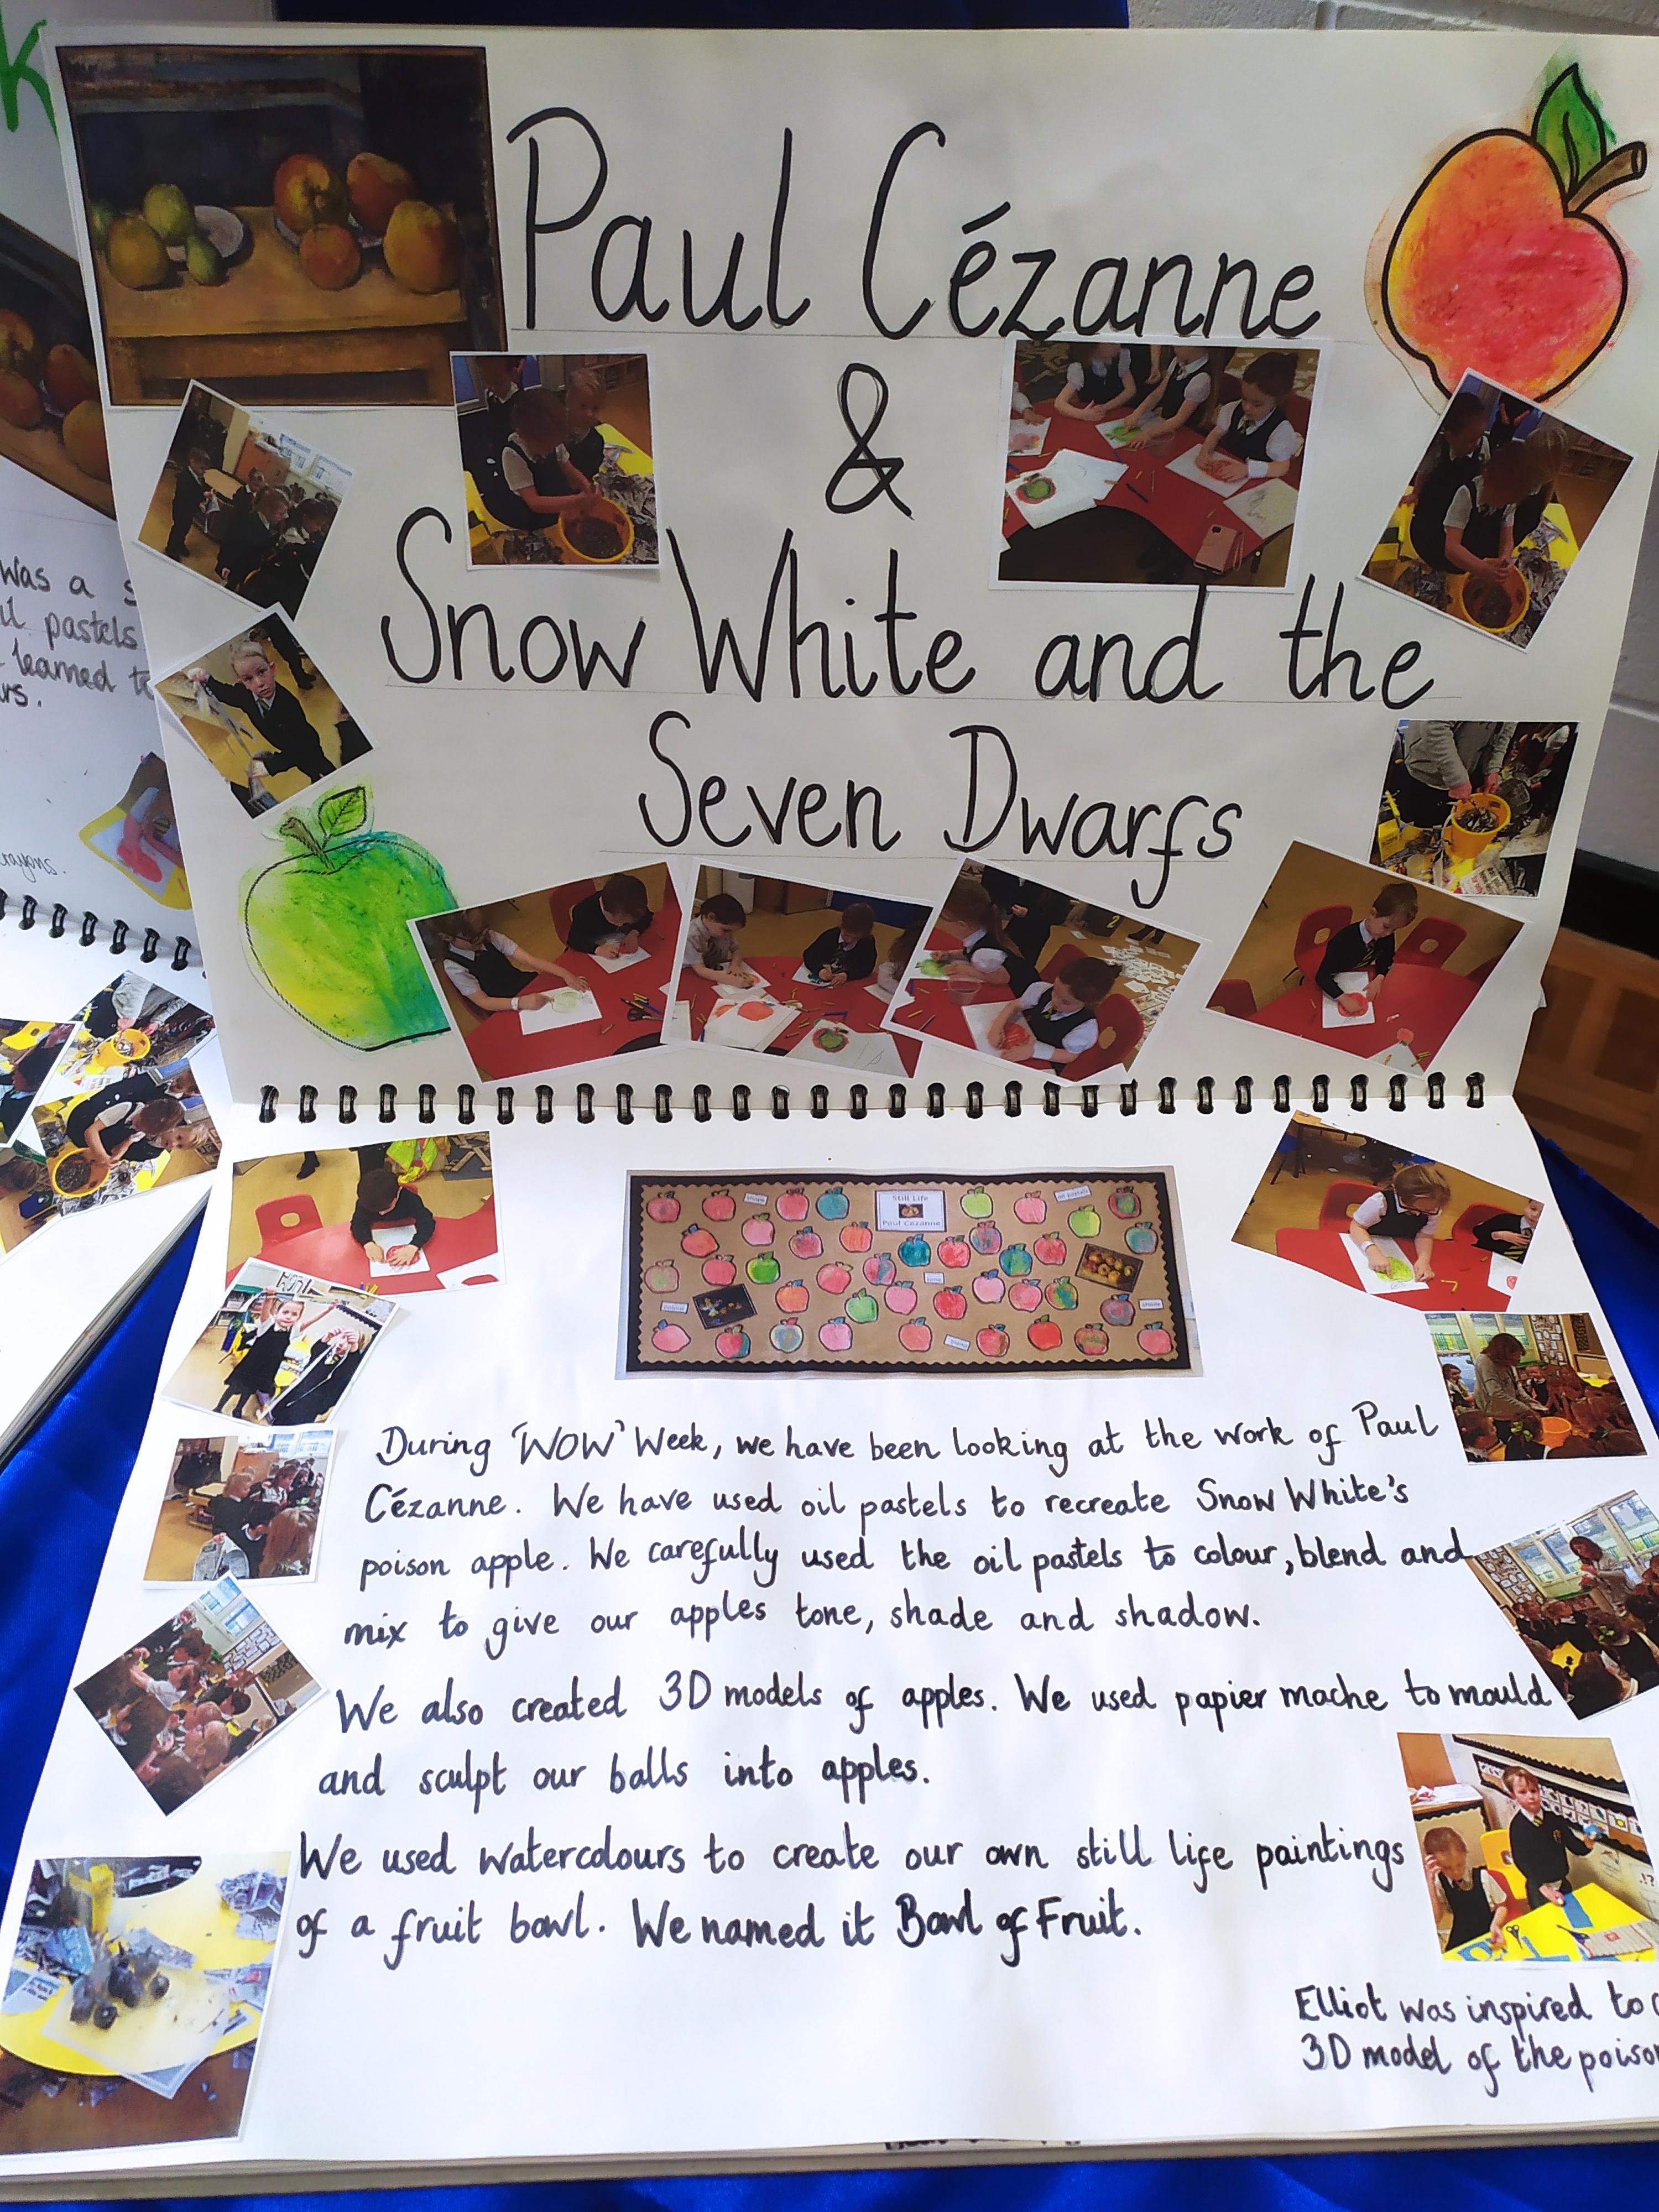 Paul Cézanne
&
Snow White and the
Seven Dwarfs
K
was a
pastels
learned
crayons.
Still Life
Paul Cezanne
oil pastels
During 'WOW' Week, we have been looking at the work of Paul
Cézanne. We have used oil pastels to recreate Snow White's
poison apple. We carefully used the oil pastels to colour, blend and
mix to give our apples tone, shade and shadow.
We also created 3D models of apples. We used papier mache to mould
and sculpt our balls into apples.
We used watercolours to create our own still life paintings
of a fruit bowl. We named it Bowl of Fruit.
Elliot was inspired to
3D model of the poison